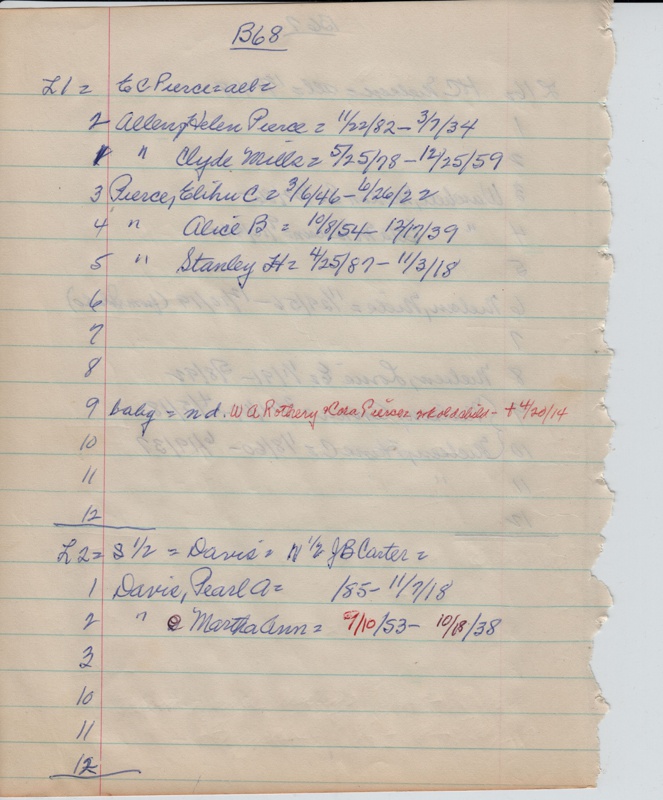 B68
L1 = E C Pierce = all =
2 Allen, Helen Pierce = 11/22/82 - 3/7/34
1 " Clyde Mills = 5/25/78 - 12/25/59
3 Pierce, Elihu C = 3/6/46 - 6/26/22
4 " Alice B = 10/8/54 - 12/17/39
5 " Stanley H = 4/25/87 - 11/3/18
6
7
8
9 baby = nd. W A Rothery & Cora Pierce = - + 4/20/14
10
11
12
L2 = S 1/2 = Davis = N 1/2 J B Carter =
1 Davis, Pearl A = /85 - 11/7/18
2 " Martha Ann = 7/10/53 - 10/18/38
3
10
11
12